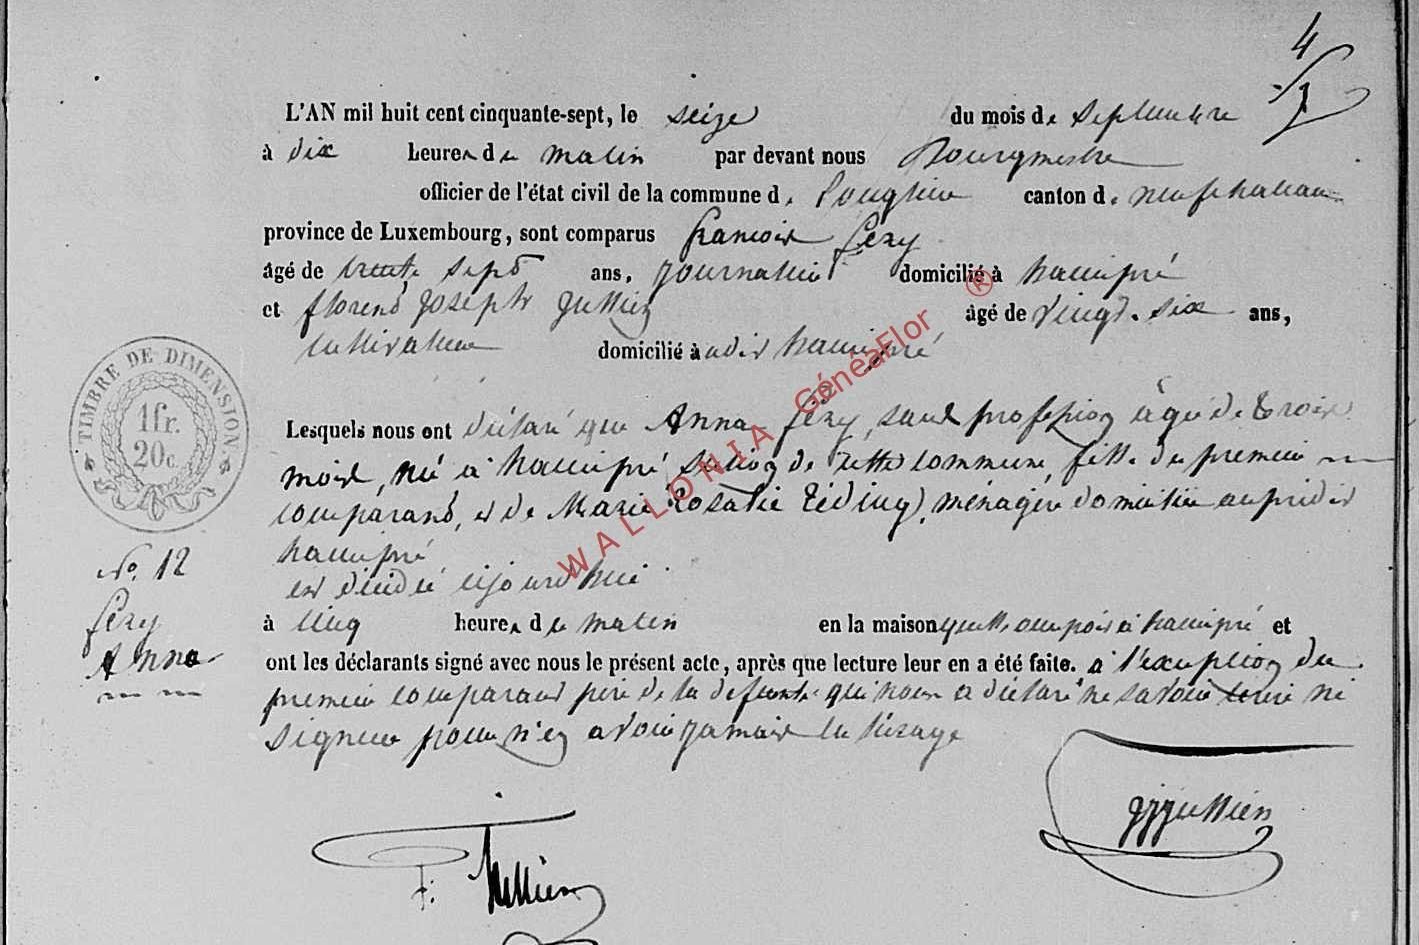 4
L'AN mil huit cent cinquante-sept, le seize du mois de septembre
à dix heures du matin par devant nous Bourgmestre
officier de l'état civil de la commune de Longlier canton de neufchateau
province de Luxembourg, sont comparus francois fery
âgé de trente sept ans, journalier domicilié à hamipré
et florend joseph âgé de vingt-six ans,
cultivateur domicilié à audit hamipré
TIMBRE DE DIMENSION
1fr.
20c.
Lesquels nous ont déclaré que Anna féry, sans profession âgée de trois
mois, née à hamipré section de cette commune, fille du premier
comparant, et de Marie Rosalie ménagère domiciliée au prédit
hamipré
est décédée aujourd'hui
à cinq heures du matin en la maison qu'elle occupait à hamipré et
ont les déclarants signé avec nous le présent acte, après que lecture leur en a été faite. à l'exception du
premier comparant père de la défunte qui nous a déclaré ne savoir écrire ni
signer pour n'en avoir jamais eu l'usage
No. 12
féry
Anna
WALLONIA GénéaFlor ®